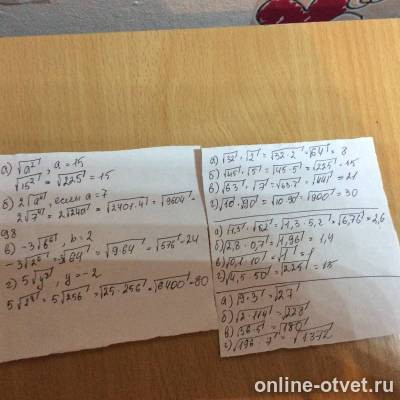 а) √a², a = 15
√15² = √225 = 15
б) 2√a⁴, если a = 7
2√7⁴ = 2√2401 = √2401·4 = √9604 =
98
в) -3√b⁶, b = 2
-3√2⁶ = -3√64 = √9·64 = √576 = 24
г) 5√y⁸, y = -2
5√2⁸ = 5√256 = √25·256 = √6400 = 80
а) √32·√2 = √32·2 = √64 = 8
б) √45·√5 = √45·5 = √225 = 15
в) √63·√7 = √63·7 = √441 = 21
г) √10·√90 = √10·90 = √900 = 30
а) √1,3·√5,2 = √1,3·5,2 = √6,76 = 2,6
б) √2,8·0,7 = √1,96 = 1,4
в) √0,1·10 = √1 = 1
г) √4,5·50 = √225 = 15
а) √9·3 = √27
б) √2·114 = √228
в) √36·5 = √180
г) √196·7 = √1372
online-otvet.ru